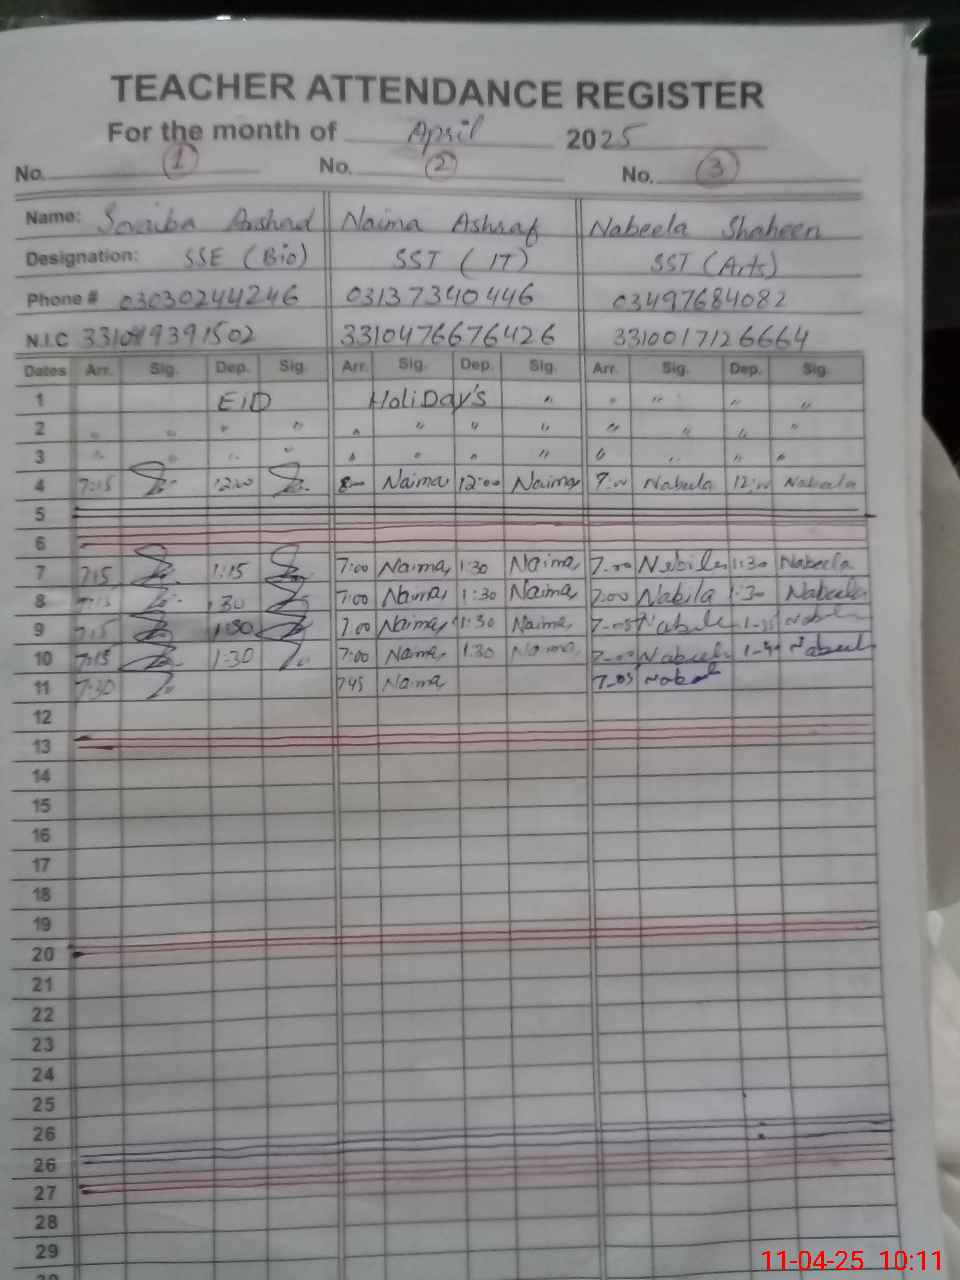 TEACHER ATTENDANCE REGISTER
For the month of April 2025
No. 1 No. 2 No. 3
Name: Naima Ashraf Nabeela Shaheen
Designation: SSE (Bio) SST (IT) SST (Arts)
Phone # 03030244246 03137340446 03497684082
N.I.C 3310476676426 3310017126664
Dates Arr. Sig. Dep. Sig. Arr. Sig. Dep. Sig. Arr. Sig. Dep. Sig.
1 EID HoliDay's " " " " "
2 " " " " " " " " " " " "
3 " " " " " " " " " " " "
4 7:15 12:00 8:00 Naima 12:00 Naima 9:00 Nabeela 12:00 Nabeela
5
6
7 7:15 1:15 7:00 Naima 1:30 Naima 7-00 Nabila 1:30 Nabeela
8 7:15 1:30 7:00 Naima 1:30 Naima 7:00 Nabila 1:30 Nabeela
9 7:15 1:30 7:00 Naima 1:30 Naima 7-05
10 7:15 1-30 7:00 Naima 1:30 Naima 7-00 Nabeela Nabeela
11 7:30 7:45 Naima 7-05
12
13
14
15
16
17
18
19
20
21
22
23
24
25
26
26
27
28
29
11-04-25 10:11